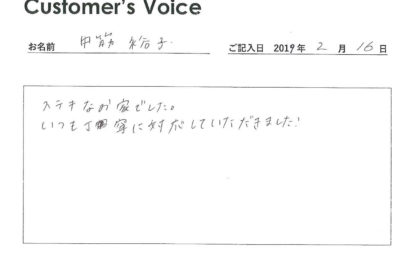 Customer's Voice
お名前 中筋 裕子 ご記入日 2019年 2月 16日
ステキなお家でした。
いつも丁寧に対応していただきました!